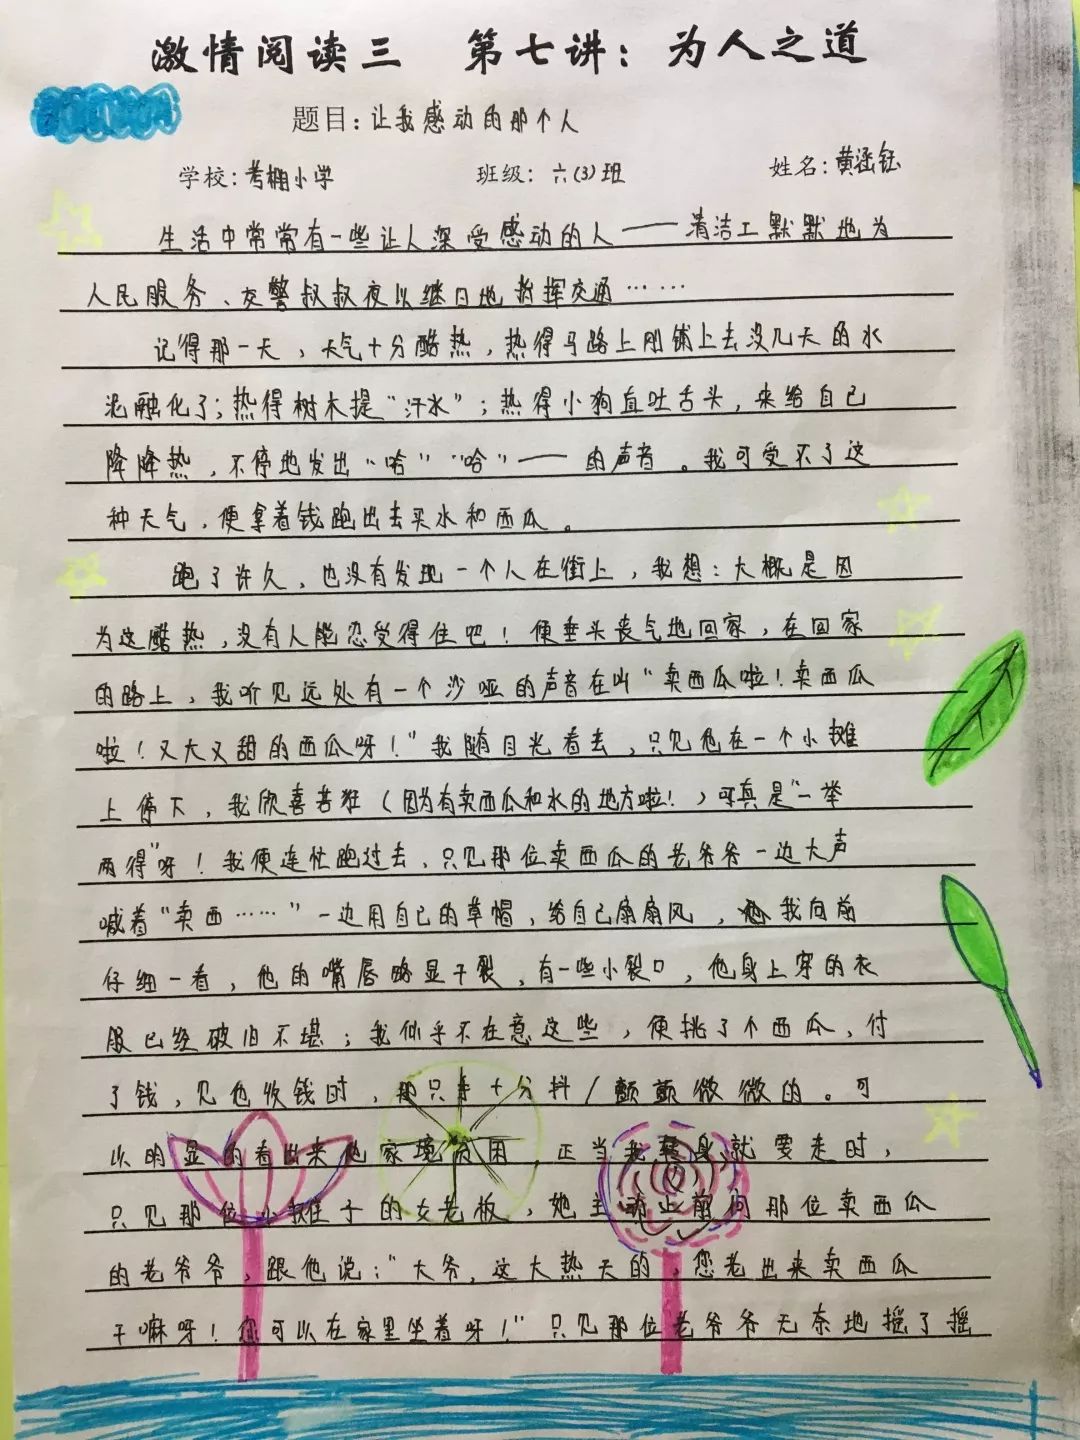 激情阅读三　第七讲：为人之道
题目：让我感动的那个人
学校：考棚小学　班级：六(3)班　姓名：黄涵钰
生活中常常有一些让人深受感动的人——清洁工默默地为
人民服务、交警叔叔夜以继日地指挥交通……
记得那一天，天气十分酷热，热得马路上刚铺上去没几天的水
泥融化了；热得树木提“汗水”；热得小狗直吐舌头，来给自己
降降热，不停地发出“哈”“哈”——的声音。我可受不了这
种天气，便拿着钱跑出去买水和西瓜。
跑了许久，也没有发现一个人在街上，我想：大概是因
为这酷热，没有人能忍受得住吧！便垂头丧气地回家，在回家
的路上，我听见远处有一个沙哑的声音在叫“卖西瓜啦！卖西瓜
啦！又大又甜的西瓜呀！”我随目光看去，只见他在一个小摊
上停下，我欣喜若狂（因为有卖西瓜和水的地方啦！）可真是“一举
两得”呀！我便连忙跑过去，只见那位卖西瓜的老爷爷一边大声
喊着“卖西……”一边用自己的草帽，给自己扇扇风，我向前
仔细一看，他的嘴唇略显干裂，有一些小裂口，他身上穿的衣
服已经破旧不堪；我似乎不在意这些，便挑了个西瓜，付
了钱，见他收钱时，那只手十分抖/颤颤微微的。可
以明显的看出来他家境贫困，正当我转身就要走时，
只见那位小摊子的女老板，她主动上前问那位卖西瓜
的老爷爷，跟他说：“大爷，这大热天的，您老出来卖西瓜
干嘛呀！您可以在家里坐着呀！”只见那位老爷爷无奈地摇了摇